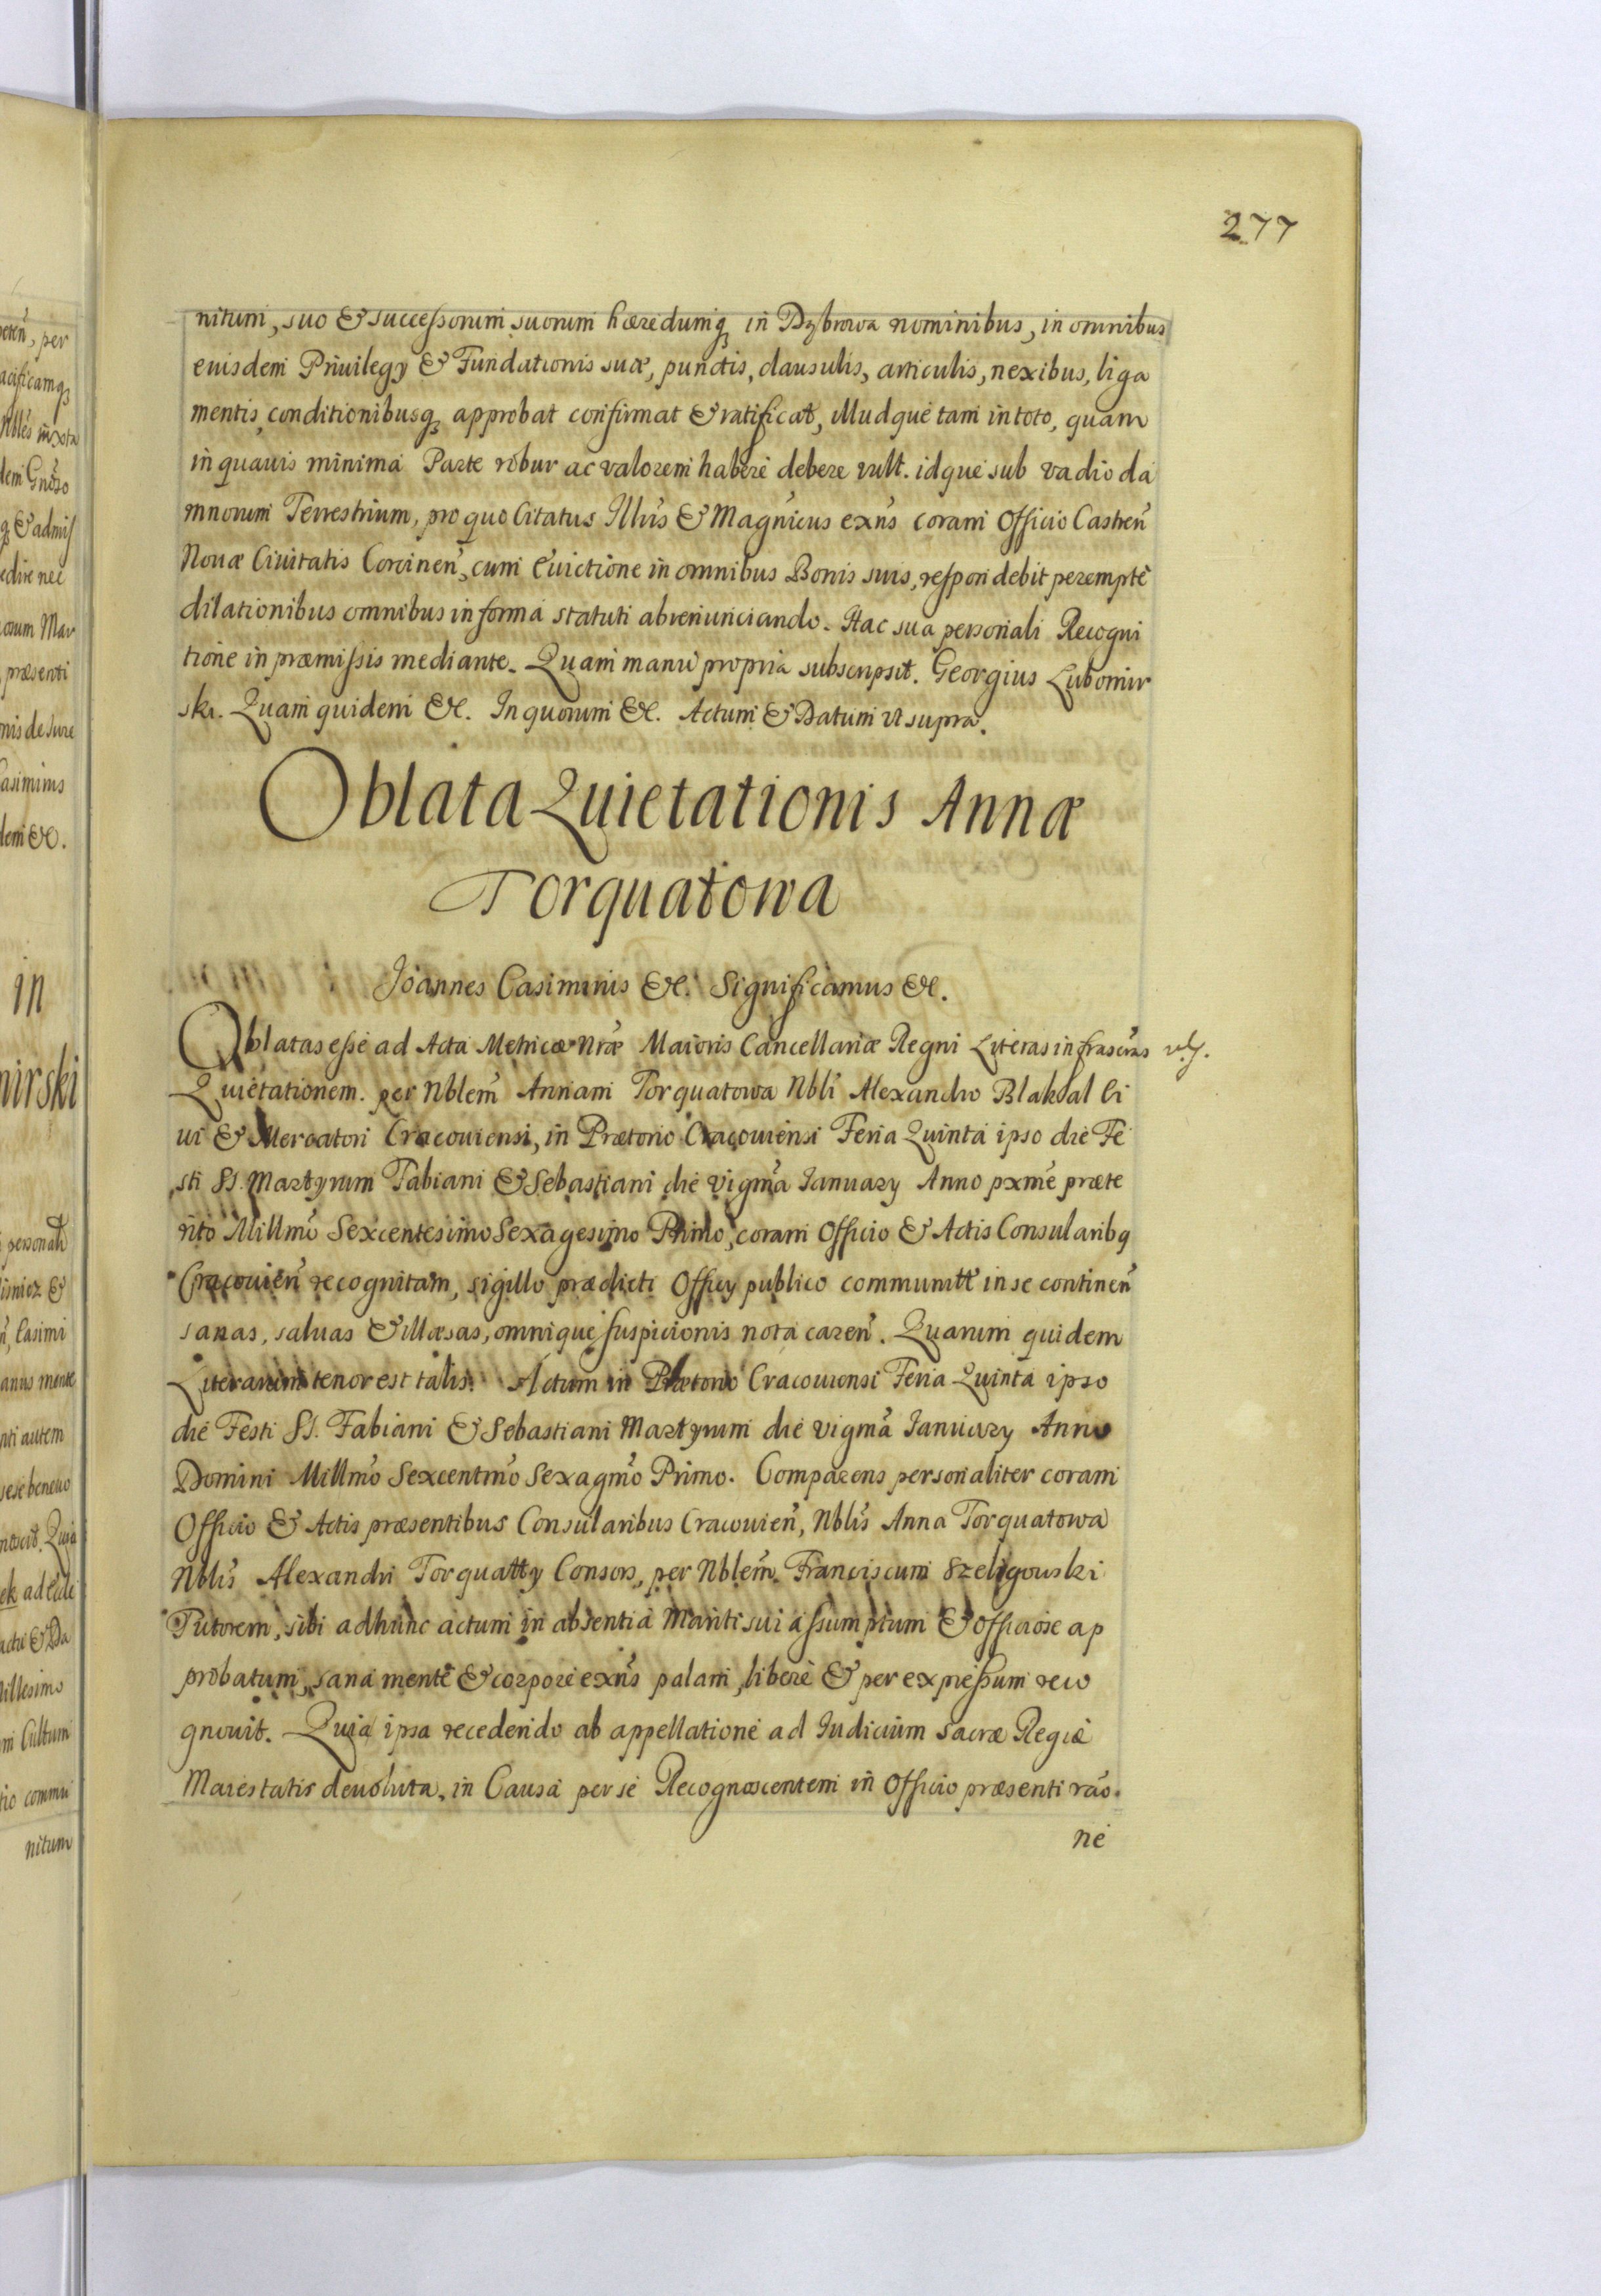 277
nitum, suo & successorum suorum hæredumq; in Dąbrowa nominibus, in omnibus
euisdem Priuilegy & Fundationis suæ, punctis, clausulis, articulis, nexibus, liga
mentis, conditionibusq; approbat confirmat & ratificat, illudque tam in toto, quam
in quauis minima Parte robur ac valorem habere debere vult. idque sub vadio da
mnorum Terrestrium, pro quo Citatus Illũs & Magñicus exñs coram Officio Castreñ
Nouæ Ciuitatis Corcineñ, cum Euictione in omnibus Bonis suis, respondebit peremptè
dilationibus omnibus in forma statuti abrenunciando. Hac sua personali Recogni
tione in præmissis mediante. Quam manu propria subscripsit. Georgius Lubomir
ski. Quam quidem &c. In quorum &c. Actum & Datum vt supra.
Oblata Quietationis Annæ
Torquatowa
Joannes Casimirus &c. Significamus &c.
Oblatas esse ad Acta Metricæ Nræ Maioris Cancellariæ Regni Literas infrascrãs
Quietationem. per Nblem̃ Annam Torquatowa Nbli Alexandro Blakhal Ci
ui & Mercatori Cracouiensi, in Prætorio Cracouiensi Feria Quinta ipso die Fe
sti SS. Martyrum Fabiani & Sebastiani die vigm̃a January Anno pxm̃e præte
rito Millmõ Sexcentesimo Sexagesimo Primo, coram Officio & Actis Consularibq
Cracouieñ recognitam, sigillo prædicti Officy publico communitt in se contineñ
sanas, saluas & illæsas, omnique suspicionis nota careñ. Quarum quidem
Literarum tenor est talis. Actum in Prætorio Cracouiensi Feria Quinta ipso
die Festi SS. Fabiani & Sebastiani Martyrum die vigm̃a January Anno
Domini Millm̃o Sexcentm̃o Sexagm̃o Primo. Comparens personaliter coram
Officio & Actis præsentibus Consularibus Cracouieñ, Nblis̃ Anna Torquatowa
Nblis̃ Alexandri Torquatty Consors, per Nblem̃ Franciscum Szeligowski
Tutorem, sibi ad hunc actum in absentia Mariti sui assumptum & officiose ap
probatum, sana mente & corpore exñs palam, liberè & per expressum reco
gnouit. Quia ipsa recedendo ab appellatione ad Iudicium Sacræ Regiæ
Maiestatis deuoluta, in Causa per se Recognoscentem in Officio præsenti rão.
ne